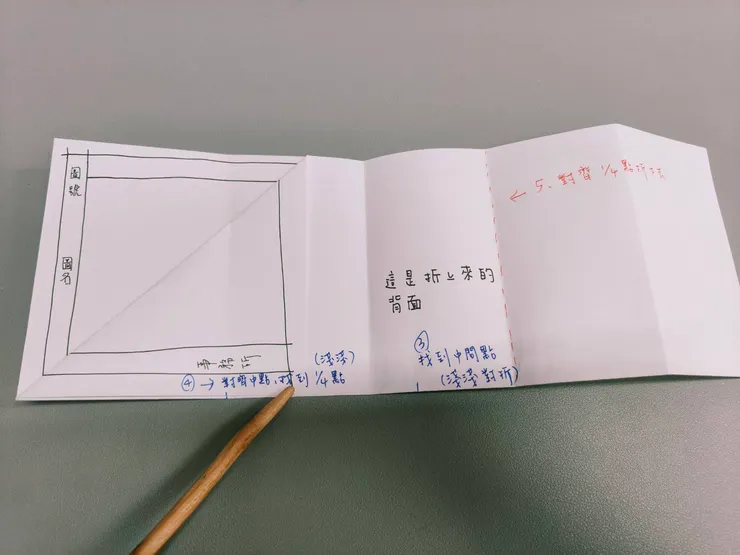 圖號
圖名
事務所
(淺淺)
④ → 對齊中點,找到 1/4點
這是折上來的
背面
③
找到中間點
(淺淺對折)
← 5. 對齊 1/4點折